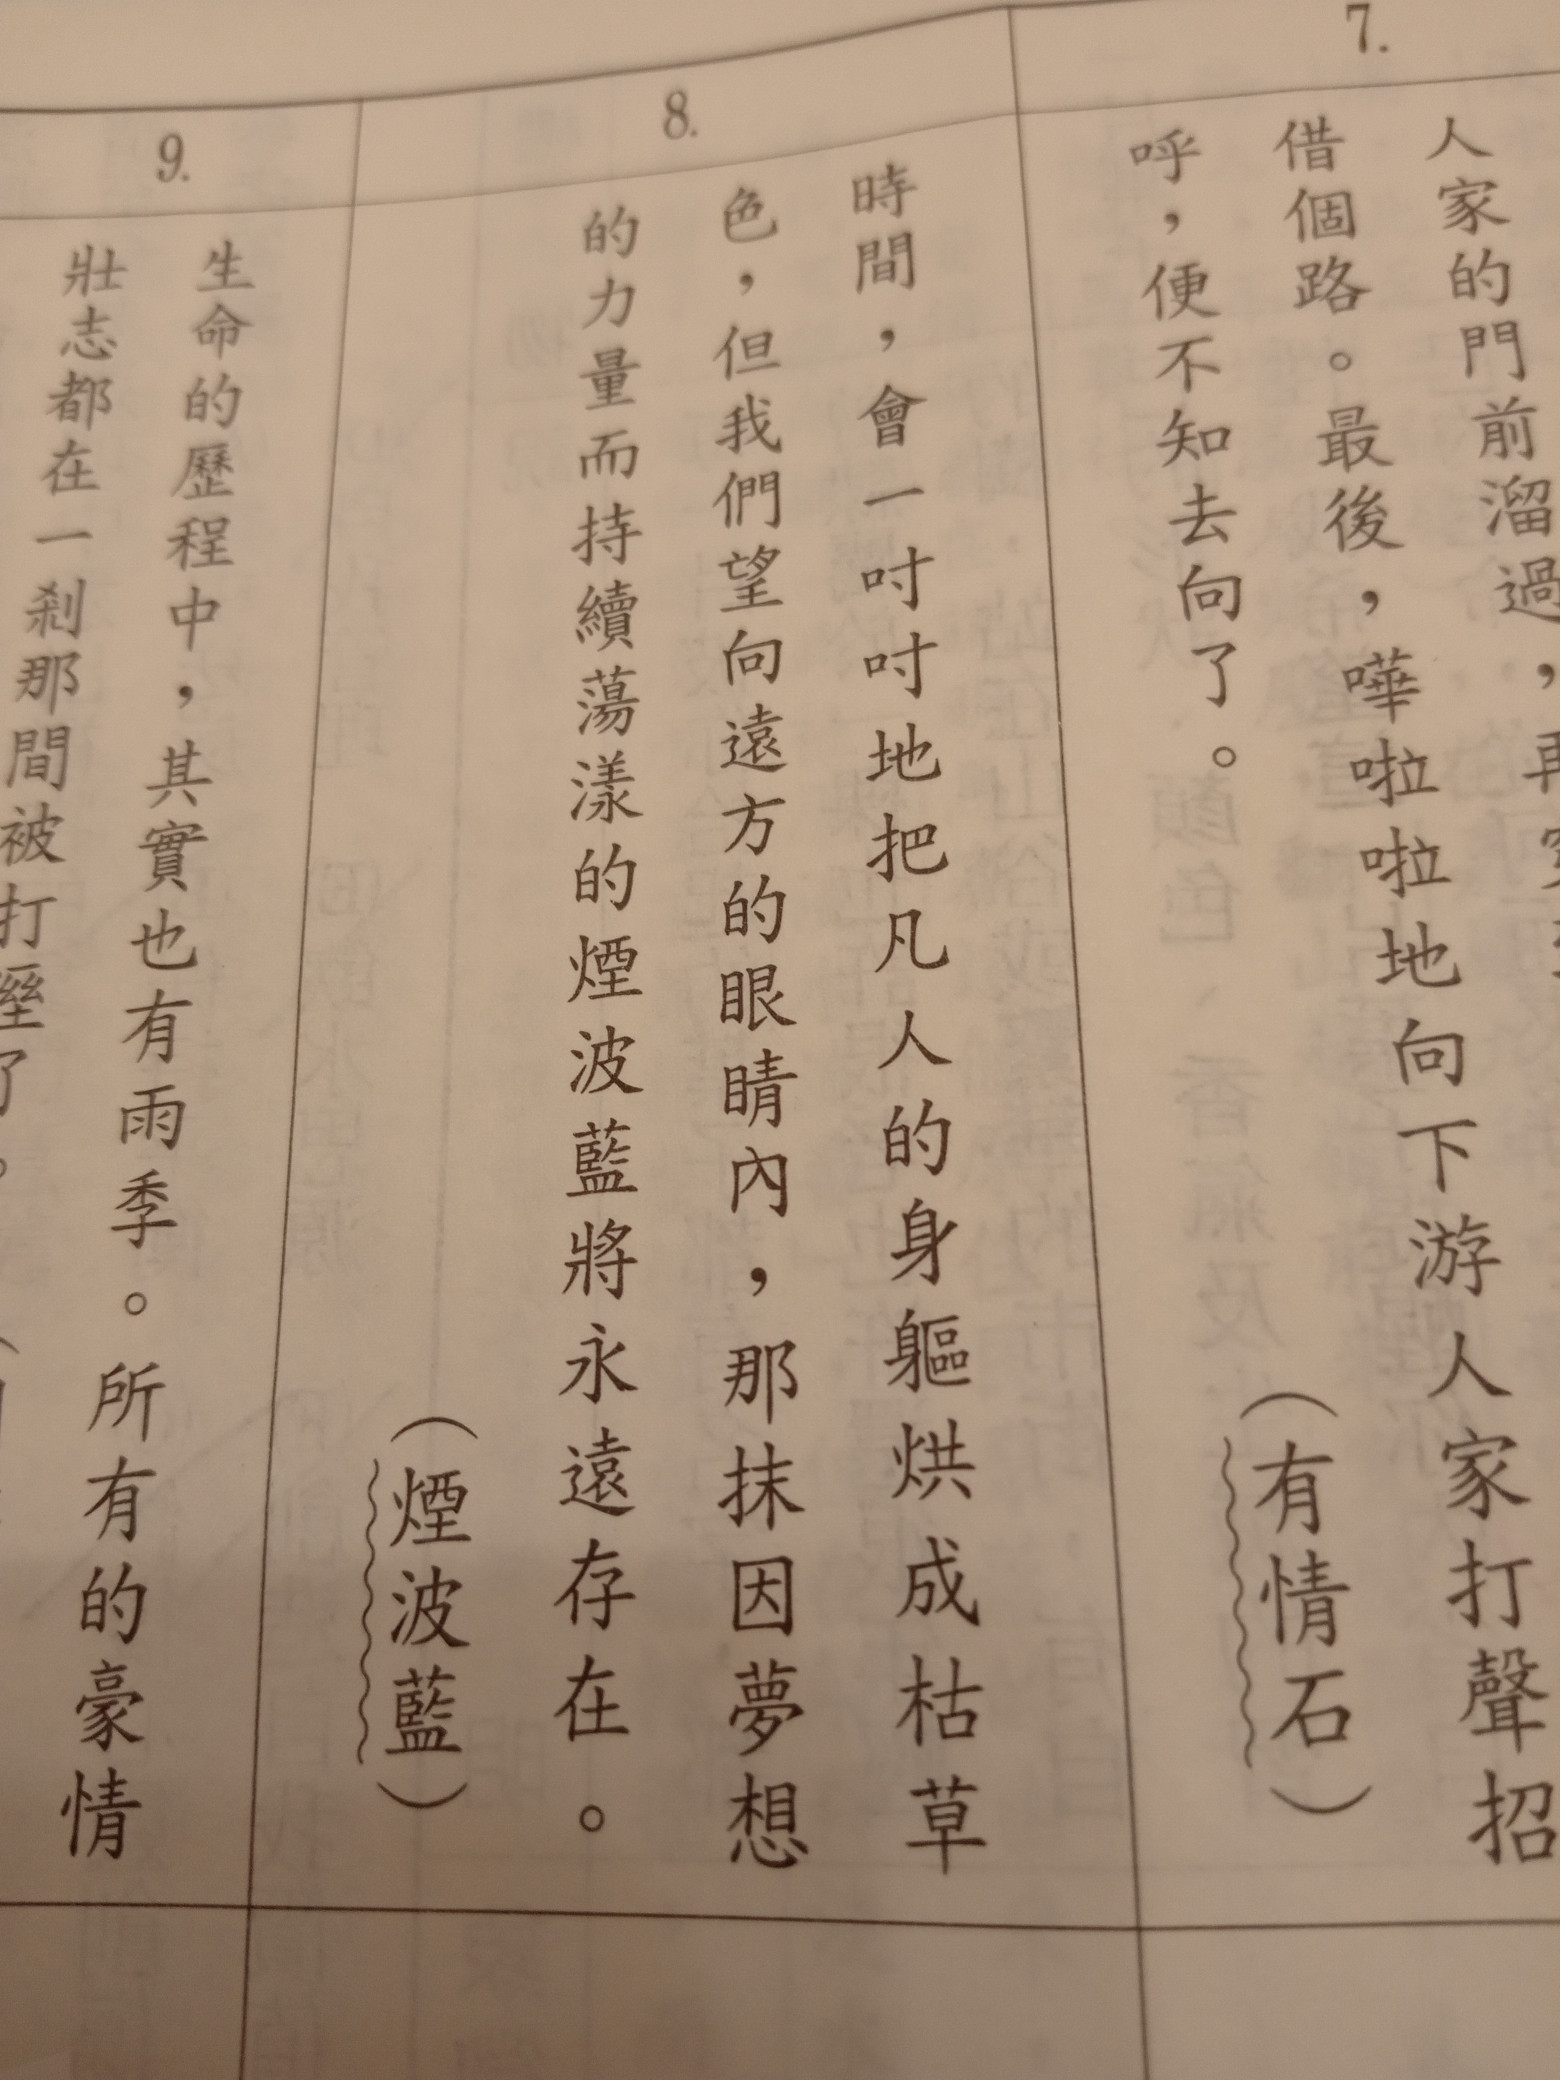 7.
人家的門前溜過，再
借個路。最後，嘩啦啦地向下游人家打聲招
呼，便不知去向了。
（有情石）
8.
時間，會一吋吋地把凡人的身軀烘成枯草
色，但我們望向遠方的眼睛內，那抹因夢想
的力量而持續蕩漾的煙波藍將永遠存在。
（煙波藍）
9.
生命的歷程中，其實也有雨季。所有的豪情
壯志都在一剎那間被打溼了。